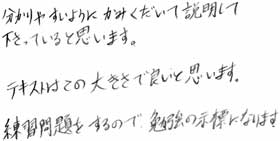 分かりやすいように かみくだいて 説明して
下さっていると思います。
テキストはこの大きさで良いと思います。
練習問題をするので 勉強の示標になります